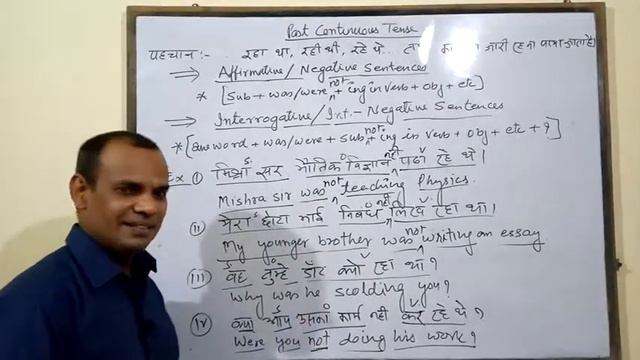 Past Continuous Tense
पहचान:- रहा था, रही थी, रहे थे.. जारी
⇒ Affirmative/Negative Sentences
* [Sub + was/were + not + ing in verb + obj + etc]
⇒ Interrogative/Int.- Negative Sentences
* [word + was/were + sub + not + ing in verb + obj + etc + ?]
Ex (i) मिश्रा सर भौतिक विज्ञान नहीं पढ़ा रहे थे।
Mishra sir was not teaching Physics.
(ii) मेरा छोटा भाई निबंध नहीं लिख रहा था।
My younger brother was not writing an essay
(iii) वह तुम्हें डाँट क्यों रहा था?
Why was he scolding you?
(iv) क्या आप उसका कार्य नहीं कर रहे थे?
Were you not doing his work?